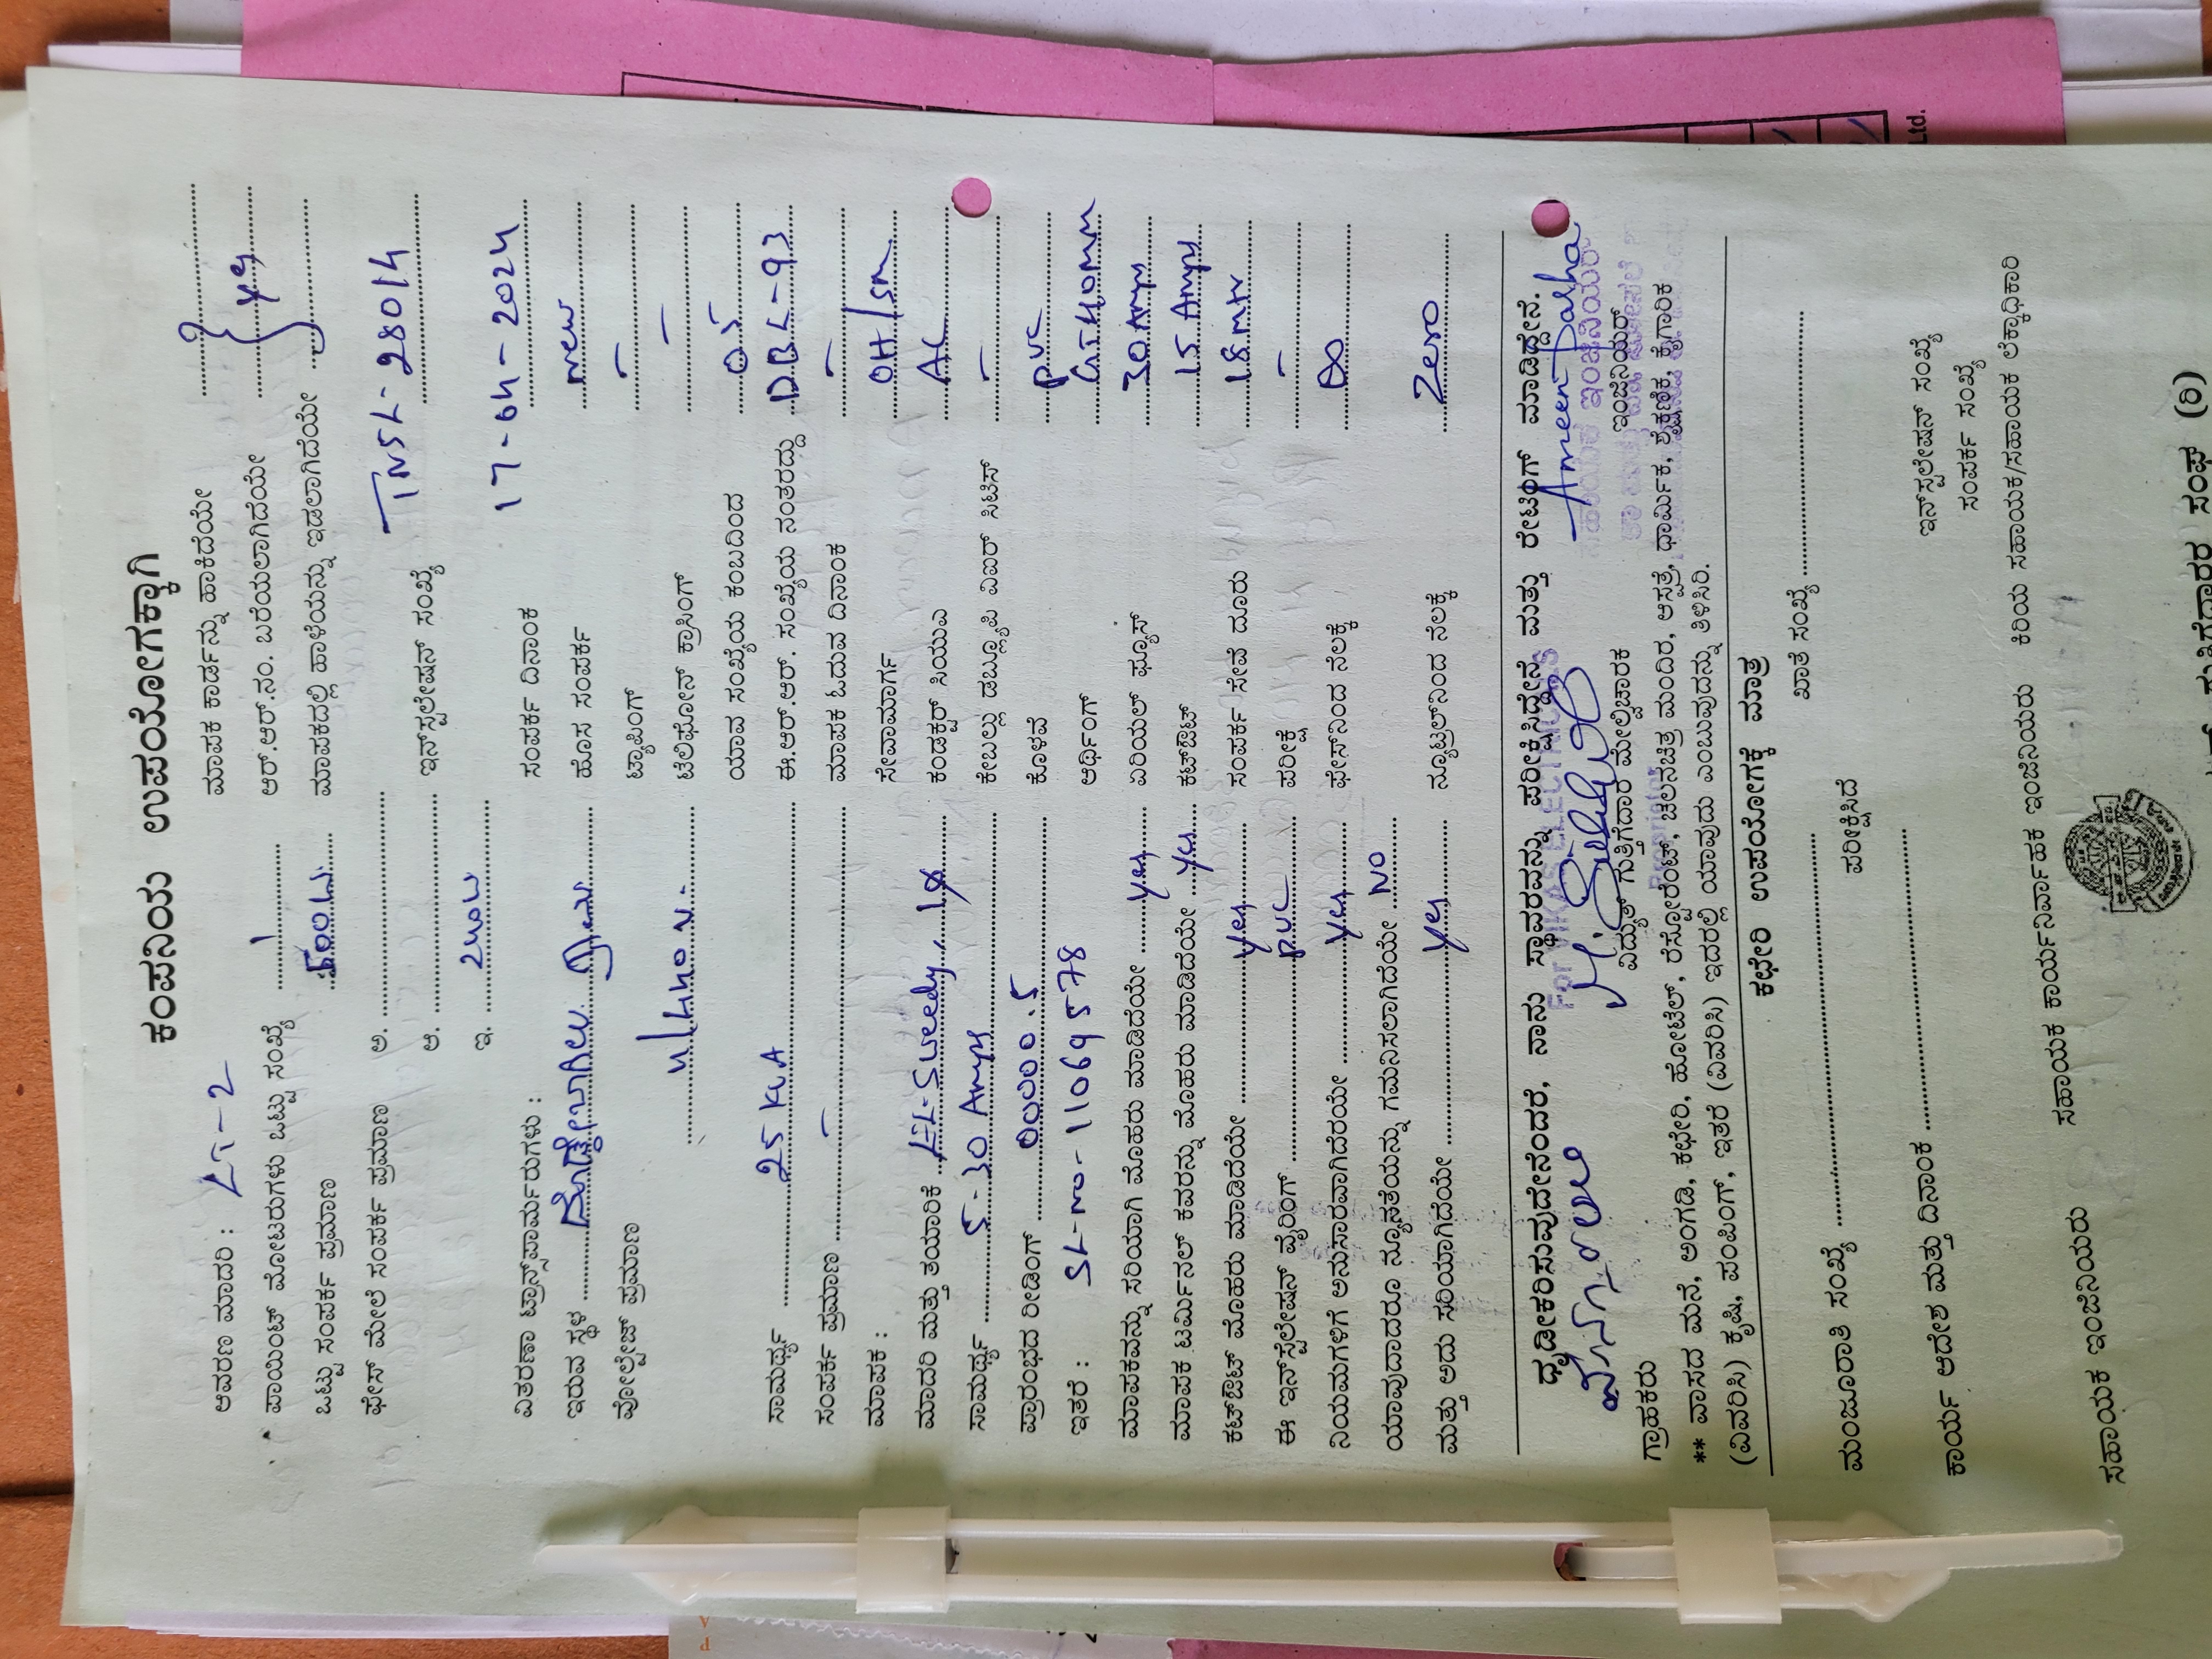 ಕಂಪನಿಯ ಉಪಯೋಗಕ್ಕಾಗಿ
ಆವರಣ ಮಾದರಿ : LT-2 ಮಾಪಕ ಕಾರ್ಡನ್ನು ಹಾಕಿದೆಯೇ
ಪಾಯಿಂಟ್ ಮೋಟರುಗಳು ಒಟ್ಟು ಸಂಖ್ಯೆ 1 ಆರ್.ಆರ್.ನಂ. ಬರೆಯಲಾಗಿದೆಯೇ yes
ಒಟ್ಟು ಸಂಪರ್ಕ ಪ್ರಮಾಣ ಮಾಪಕದಲ್ಲಿ ಹಾಳೆಯನ್ನು ಇಡಲಾಗಿದೆಯೇ
ಫೇಸ್ ಮೇಲೆ ಸಂಪರ್ಕ ಪ್ರಮಾಣ ಅ.
ಆ. ಇನ್‌ಸ್ಟಲೇಷನ್ ಸಂಖ್ಯೆ TNSL-28014
ಇ. 240W
ವಿತರಣಾ ಟ್ರಾನ್ಸ್‌ಫಾರ್ಮರುಗಳು : ಸಂಪರ್ಕ ದಿನಾಂಕ 17-04-2024
ಇರುವ ಸ್ಥಳ ಹೊಸ ಸಂಪರ್ಕ new
ವೋಲ್ಟೇಜ್ ಪ್ರಮಾಣ ಟ್ಯಾಪಿಂಗ್ –
ಟೆಲಿಫೋನ್ ಕ್ರಾಸಿಂಗ್ –
ಯಾವ ಸಂಖ್ಯೆಯ ಕಂಬದಿಂದ 05
ಸಾಮರ್ಥ್ಯ 25 KVA ಈ.ಆರ್.ಆರ್. ಸಂಖ್ಯೆಯ ನಂತರದ್ದು DBL-93
ಸಂಪರ್ಕ ಪ್ರಮಾಣ – ಮಾಪಕ ಓದುವ ದಿನಾಂಕ –
ಮಾಪಕ : ಸೇವಾಮಾರ್ಗ OH/sm
ಮಾದರಿ ಮತ್ತು ತಯಾರಿಕೆ 1ø ಕಂಡಕ್ಟರ್ ಸಿಯುಎ AL
ಸಾಮರ್ಥ್ಯ 5-30 Amps ಕೇಬಲ್ಲು ಡಬ್ಲ್ಯೂಪಿ ವಿಐಆರ್ ಸಿಟಿಸ್ –
ಪ್ರಾರಂಭದ ರೀಡಿಂಗ್ 0000.5 ಕೊಳವೆ PVC
ಇತರೆ : SL-NO-11069578 ಅರ್ಥಿಂಗ್ GI40mm
ಮಾಪಕವನ್ನು ಸರಿಯಾಗಿ ಮೊಹರು ಮಾಡಿದೆಯೇ yes ಏರಿಯಲ್ ಫ್ಯೂಸ್ 30 Amps
ಮಾಪಕ ಟರ್ಮಿನಲ್ ಕವರನ್ನು ಮೊಹರು ಮಾಡಿದೆಯೇ yes ಕಟ್‌ಔಟ್ 15 Amps
ಕಟ್‌ಔಟ್ ಮೊಹರು ಮಾಡಿದೆಯೇ yes ಸಂಪರ್ಕ ಸೇವೆ ದೂರು 18 mtr
ಈ ಇನ್‌ಸ್ಟಲೇಷನ್ ವೈರಿಂಗ್ PVC ಪರೀಕ್ಷೆ –
ನಿಯಮಗಳಿಗೆ ಅನುಸಾರವಾಗಿದೆರೆಯೇ yes ಫೇಸ್‌ನಿಂದ ನೆಲಕ್ಕೆ
ಯಾವುದಾದರೂ ನ್ಯೂನತೆಯನ್ನು ಗಮನಿಸಲಾಗಿದೆಯೇ NO
ಮತ್ತು ಅದು ಸರಿಯಾಗಿದೆಯೇ yes ನ್ಯೂಟ್ರಲ್‌ನಿಂದ ನೆಲಕ್ಕೆ Zero
ಧೃಡೀಕರಿಸುವುದೇನೆಂದರೆ, ನಾನು ಸ್ಥಾವರವನ್ನು ಪರೀಕ್ಷಿಸಿದ್ದೇನೆ ಮತ್ತು ರೇಟಿಂಗ್ ಮಾಡಿದ್ದೇನೆ.
Ameen Pasha
ಗ್ರಾಹಕರು ವಿದ್ಯುತ್ ಗುತ್ತಿಗೆದಾರ ಮೇಲ್ವಿಚಾರಕ ಇಂಜಿನಿಯರ್
** ವಾಸದ ಮನೆ, ಅಂಗಡಿ, ಕಛೇರಿ, ಹೋಟೆಲ್, ರೆಸ್ಟೋರೆಂಟ್, ಚಲನಚಿತ್ರ ಮಂದಿರ, ಆಸ್ಪತ್ರೆ, ಧಾರ್ಮಿಕ, ಶೈಕ್ಷಣಿಕ, ಕೈಗಾರಿಕ
(ವಿವರಿಸಿ) ಕೃಷಿ, ಪಂಪಿಂಗ್, ಇತರೆ (ವಿವರಿಸಿ) ಇದರಲ್ಲಿ ಯಾವುದು ಎಂಬುವುದನ್ನು ತಿಳಿಸಿರಿ.
ಕಛೇರಿ ಉಪಯೋಗಕ್ಕೆ ಮಾತ್ರ
ಮಂಜೂರಾತಿ ಸಂಖ್ಯೆ ಖಾತೆ ಸಂಖ್ಯೆ
ಪರೀಕ್ಷಿಸಿದೆ
ಕಾರ್ಯ ಆದೇಶ ಮತ್ತು ದಿನಾಂಕ ಇನ್‌ಸ್ಟಲೇಷನ್ ಸಂಖ್ಯೆ
ಸಂಪರ್ಕ ಸಂಖ್ಯೆ
ಸಹಾಯಕ ಇಂಜಿನಿಯರು ಸಹಾಯಕ ಕಾರ್ಯನಿರ್ವಾಹಕ ಇಂಜಿನಿಯರು ಕಿರಿಯ ಸಹಾಯಕ/ಸಹಾಯಕ ಲೆಕ್ಕಾಧಿಕಾರಿ
ಗುತ್ತಿಗೆದಾರರ ಸಂಘ (ರಿ)
Ltd.